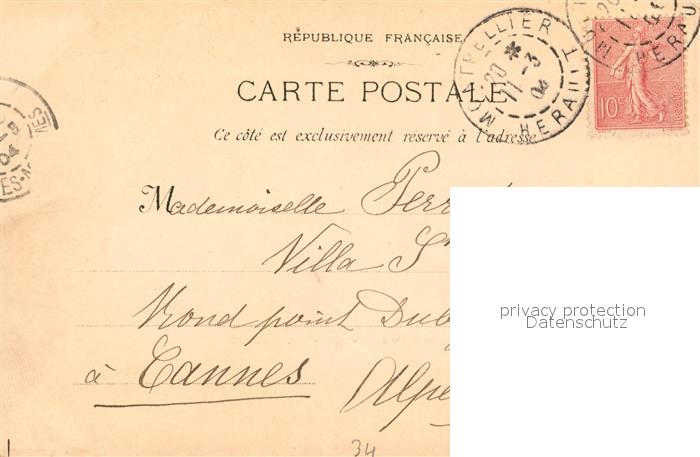 RÉPUBLIQUE FRANÇAISE
CARTE POSTALE
Ce côté est exclusivement réservé à l'adresse
MONTPELLIER
HERAULT
20
11 -3
04
10c
HERAU
Mademoiselle
Villa
Rond point
à Cannes
privacy protection
Datenschutz
34